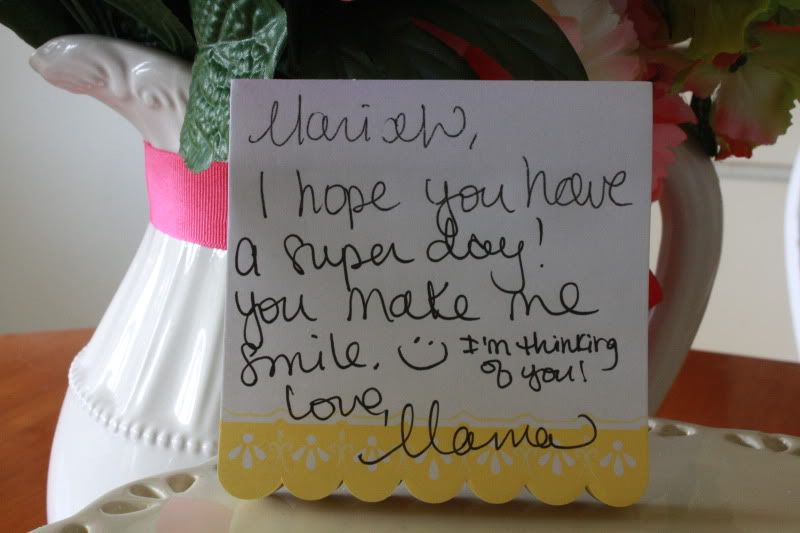 Mariah,
I hope you have
a super day!
you make me
smile. I'm thinking
of you!
Love,
Mama